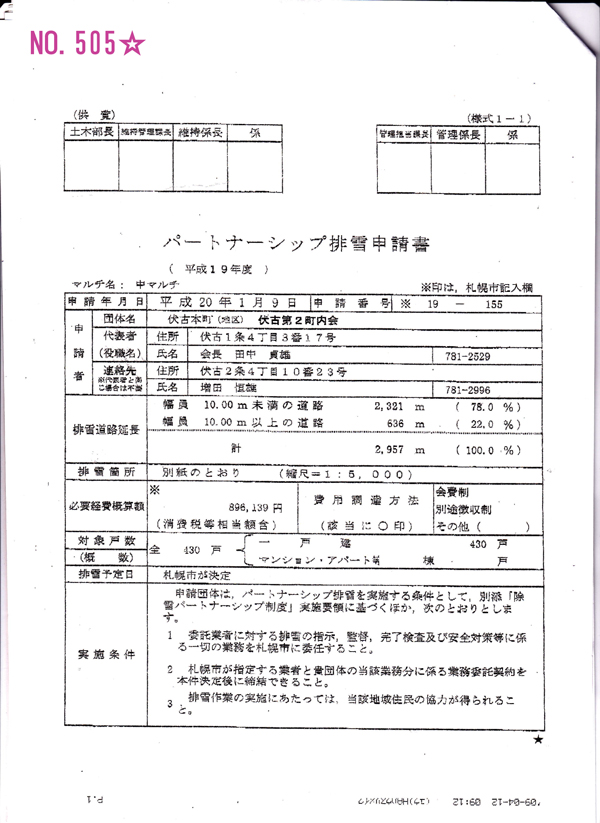 NO. 505☆
(供 覧)
(様式1-1)
土木部長 維持管理課長 維持係長 係
管理担当課長 管理係長 係
パートナーシップ排雪申請書
( 平成19年度 )
マルチ名: 中マルチ ※印は,札幌市記入欄
申請年月日 平成20年1月9日 申請番号 ※ 19 - 155
申請者
団体名 伏古本町(地区) 伏古第2町内会
代表者 住所 伏古1条4丁目3番17号
(役職名) 氏名 会長 田中 貞雄 781-2529
連絡先 住所 伏古2条4丁目10番23号
氏名 増田 恒雄 781-2996
排雪道路延長
幅員 10.00m未満の道路 2,321 m ( 78.0 %)
幅員 10.00m以上の道路 636 m ( 22.0 %)
計 2,957 m (100.0 %)
排雪箇所 別紙のとおり (縮尺=1:5,000)
必要経費概算額 ※ 896,139円 (消費税等相当額含)
費用調達方法 (該当に○印)
会費制
別途徴収制
その他( )
対象戸数 (概 数)
全 430 戸
一 戸 建 430 戸
マンション・アパート等 棟 戸
排雪予定日 札幌市が決定
実施条件
申請団体は,パートナーシップ排雪を実施する条件として,別添「除
雪パートナーシップ制度」実施要領に基づくほか,次のとおりとしま
す。
1 委託業者に対する排雪の指示,監督,完了検査及び安全対策等に係
る一切の業務を札幌市に委任すること。
2 札幌市が指定する業者と貴団体の当該業務分に係る業務委託契約を
本件決定後に締結できること。
3 排雪作業の実施にあたっては,当該地域住民の協力が得られるこ
と。
★
'09-04-12 09:12
P.1